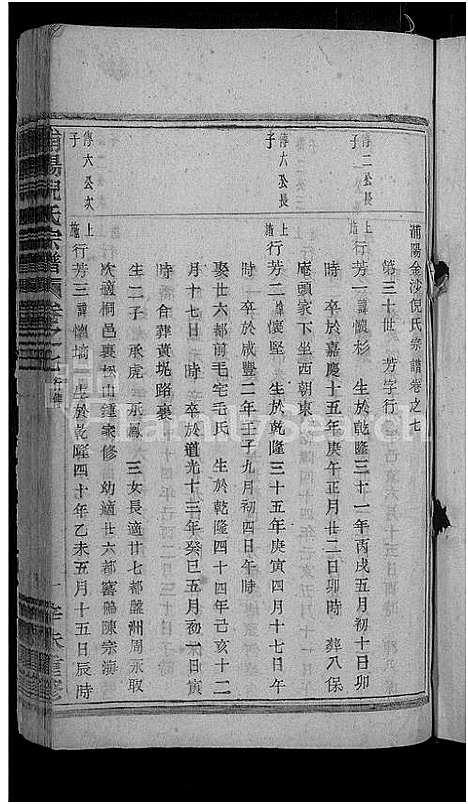 浦陽金沙倪氏宗譜卷之七
第三十世　芳字行
惇二公長子
上行芳一諱懷杉　生於乾隆三十一年丙戌五月初十日卯
時　卒於嘉慶十五年庚午正月廿二日卯時　葬八保
庵頭家下坐西朝東
惇六公長子
上行芳二諱懷堅　生於乾隆三十五年庚寅四月十七日午
時　卒於咸豐二年壬子九月初四日午時
娶廿六都前毛宅毛氏　生於乾隆四十四年己亥十二
月十七日　時　卒於道光十三年癸巳五月初一日寅
時　合葬黃坭路裏
生二子　承虎　承鳳　三女長適廿七都盤洲周永取
次適桐邑裏松山鍾家修　幼適廿六都富鵝陳宗海
惇六公次子
上行芳三諱懷墒　生於乾隆四十年乙未五月十五日辰時
浦陽倪氏宗譜
卷之七
行傳
FamilySearch